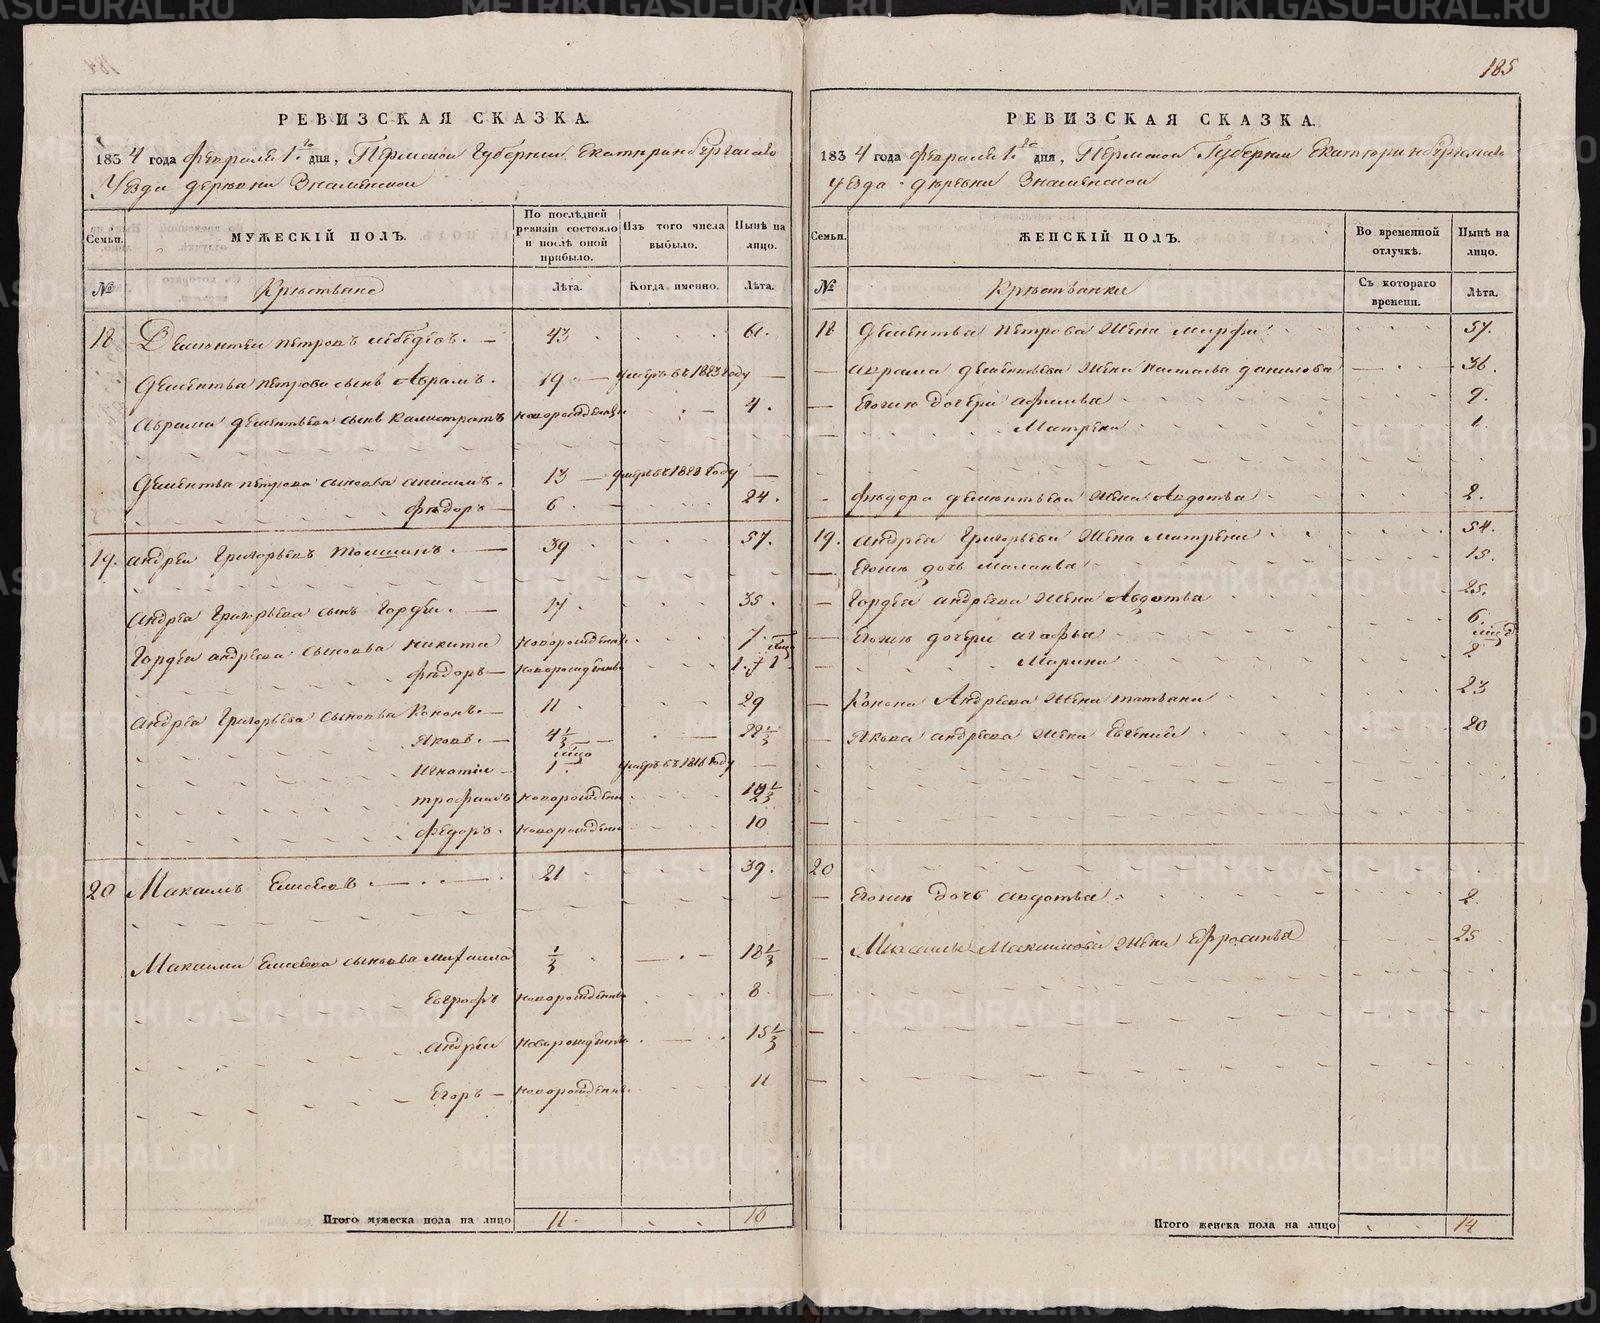 185
РЕВИЗСКАЯ СКАЗКА.
1834 года февраля 1го дня, Пермской Губернии Екатеринбургскаго
Уезда деревни Знаменской
Семьи.
МУЖЕСКІЙ ПОЛЪ.
По послѣдней ревизіи состояло и послѣ оной прибыло.
Изъ того числа выбыло.
Нынѣ на лицо.
№
Крѣстьяне
Лѣта.
Когда именно.
Лѣта.
18 Дементеи петровъ лебедевъ. 43 61.
Дементья петрова сынъ Аврамъ. 19 умеръ въ 1823 году
Аврама дементьева сынъ Калистратъ новорожденны 4.
Дементья петрова сыновья анисимъ. 13 умеръ въ 1828 году
фѣдоръ 6 24.
19. андреи Григорьевъ томшинъ. 39 57.
андрея Григорьева сынъ Гордеи. 17 35.
Гордея андреева сыновья никита новорожденны 7.
фѣдоръ новорожденны
андрея Григорьева сыновья Кононъ. 11 29
Яковъ. 4 1/3 22 1/3
Игнатіи 1. умеръ въ 1816 году
трофимъ новорожденны
федоръ. новорожденны 10
20 Макаимъ Елисеевъ 21 39.
Макаима Елисеева сыновья михаила 1/3 18 1/3
Евграфъ новорожденны 8
андреи новорожденны 15 1/3
Егоръ новорожденны 11
Итого мужеска пола на лицо 11. 16
РЕВИЗСКАЯ СКАЗКА.
1834 года февраля 1го дня, Пермской Губернии Екатеринбургскаго
уезда деревни Знаменской
Семьи.
ЖЕНСКІЙ ПОЛЪ.
Во временной отлучкѣ.
Нынѣ на лицо.
№
Крѣстьянки
Съ котораго времени.
Лѣта.
18 Дементья петрова жена марфа 57.
аврама дементьева жена наталья данилова 36.
Евоше дочери афимья 9.
Матрена 1.
фѣдора дементьева жена Авдотья 2.
19. андрея Григорьева жена матрена 54.
Евоше дочь маланья 15.
Гордея андреева жена Авдотья 25.
Евоше дочери агафья 6.
Марина
Конона Андреева жена татьяна 23
Якова андреева жена Евгения 20
20
Евоше дочь авдотья 2
Михаила Макаимова жена Ефросинья 25
Итого женска пола на лицо 14
METRIKI.GASO-URAL.RU